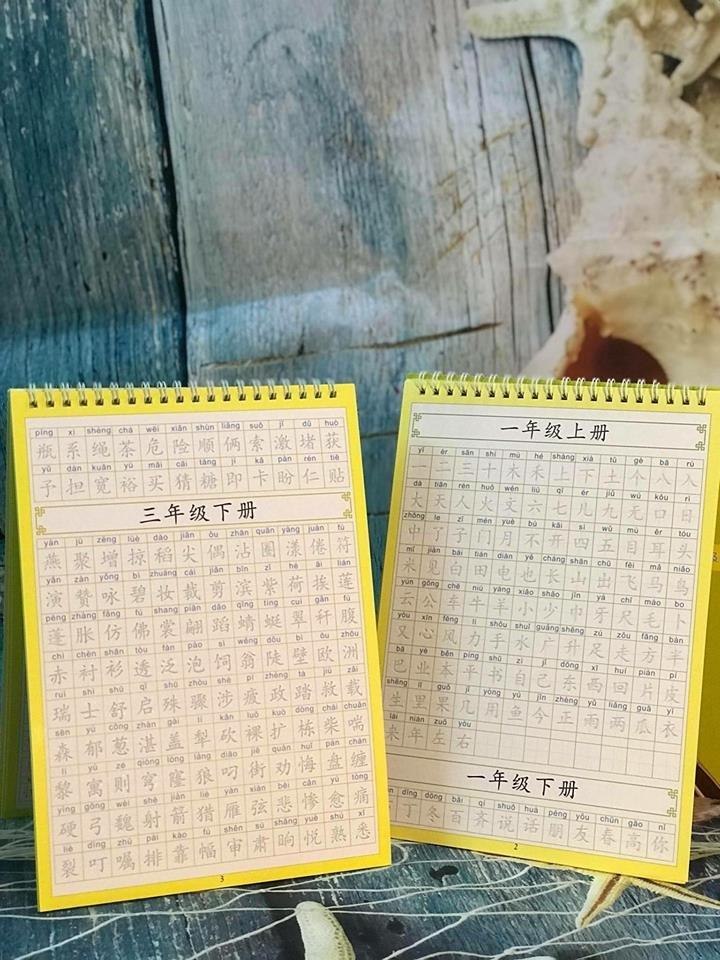 píng xì shéng chá wēi xiǎn shùn liǎng suǒ jī dǔ huò
瓶系绳茶危险顺俩索激堵获
yǔ dān kuān yù mǎi cāi táng jí kǎ pàn rén tiē
予担宽裕买猜糖即卡盼仁贴
三年级下册
yàn jù zēng lüè dào jiān ǒu zhān quān yàng juàn fú
燕聚增掠稻尖偶沾圈漾倦符
yǎn zàn yǒng bì zhuāng cái jiǎn bīn zǐ hé āi lián
演赞咏碧妆裁剪滨紫荷挨莲
péng zhàng fǎng fú shang piān dǎo qīng tíng cuì gǎn fù
蓬胀仿佛裳翩蹈蜻蜓翠秆腹
chì chèn shān tòu fàn pào sì wēng dǒu bì ōu zhōu
赤衬衫透泛泡饲翁陡壁欧洲
ruì shì shū qǐ shū zhòu shè pí zhèng tà jiù zài
瑞士舒启殊骤涉疲政踏救载
sēn yù cōng zhàn gài lí kǎn luǒ kuò dòng chái chuǎn
森郁葱湛盖犁砍裸扩栋柴喘
lí yù zé qióng lóng láng diāo jiē quàn huǐ pán chán
黎寓则穹窿狼叼街劝悔盘缠
yìng gōng wèi shè jiàn liè yàn xián bēi cǎn yù tòng
硬弓魏射箭猎雁弦悲惨愈痛
liè dīng zhǔ pái kào fú shěn sù shǎng yuè shú xī
裂叮嘱排靠幅审肃晌悦熟悉
3
一年级上册
yī èr sān shí mù hé shàng xià tǔ gè bā rù
一二三十木禾上下土个八入
dà tiān rén huǒ wén liù qī ér jiǔ wú kǒu rì
大天人火文六七儿九无口日
zhōng le zǐ mén yuè bù kāi sì wǔ mù ěr tóu
中了子门月不开四五目耳头
mǐ jiàn bái tián diàn yě cháng shān chū fēi mǎ niǎo
米见白田电也长山出飞马鸟
yún gōng chē niú yáng xiǎo shǎo jīn yá chǐ máo bǔ
云公车牛羊小少巾牙尺毛卜
yòu xīn fēng lì shǒu shuǐ guǎng shēng zú zǒu fāng bàn
又心风力手水广升足走方半
bā yè běn píng shū zì jǐ dōng xī huí piàn pí
巴业本平书自己东西回片皮
shēng lǐ guǒ jǐ yòng yú jīn zhèng yǔ liǎng guā yī
生里果几用鱼今正雨两瓜衣
lái nián zuǒ yòu
来年左右
一年级下册
dīng dōng bǎi qí shuō huà péng yǒu chūn gāo nǐ
丁冬百齐说话朋友春高你
2